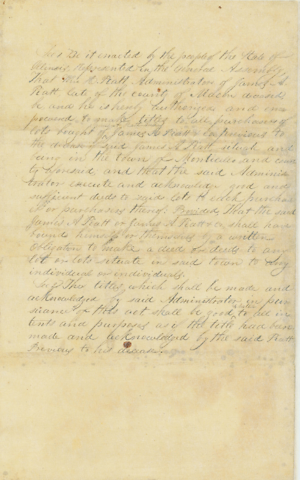 Sec 1 Be it enacted by the people of the State of
Illinois Represented in the General Assembly
That Wm H Piatt Administrator of James A.
Piatt late of the county of Macon deceased
be and he is hereby Authorized and em
powered to make titles to all purchasers of
lots bought of James A Piatt previous to
the decease of said James A Piatt, lying and
being in the town of Monticello and county
aforesaid and that the said Adminis
trator execute and acknowledge good and
sufficient deeds to said lots to each purchaser
or purchasers thereof. Provided That the said
James A Piatt shall have
bound himself or themselves by a written
obligation to make a deed or deeds to any
lot or lots situate in said town to any
individual or individuals.
Sec 2 The titles which shall be made and
acknowledged by said Administrator in pur
suance of this act shall be good to all in
tents and purposes as if the title had been
made and acknowledged by the said Piatt
Previous to his decease